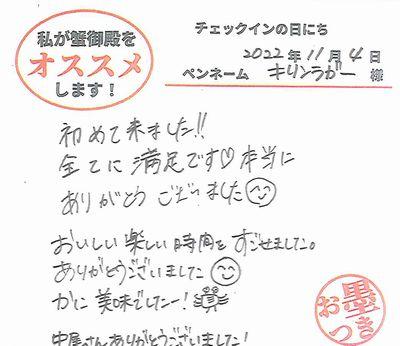 私が蟹御殿を
オススメ
します！
チェックインの日にち
2022年11月4日
ペンネーム キリンラガー 様
初めて来ました!!
全てに満足です♡本当に
ありがとうございました
おいしい楽しい時間をすごせました。
ありがとうございました
かに美味でしたー！
中尾さんありがとうございました！
お墨つき